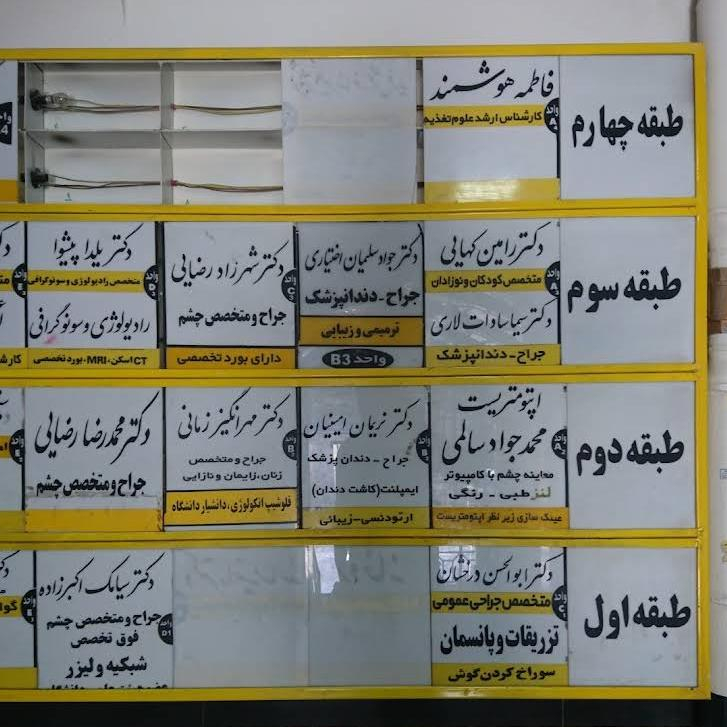 طبقه چهارم
فاطمه هوشمند
کارشناس ارشد علوم تغذیه
واحد A4
طبقه سوم
دکتر رامین کهایی
متخصص کودکان و نوزادان
دکتر سیما سادات لاری
جراح - دندانپزشک
دکتر جواد سلمان اختیاری
جراح - دندانپزشک
ترمیمی و زیبایی
واحد B3
دکتر شهرزاد رضایی
واحد C3
جراح و متخصص چشم
دارای بورد تخصصی
دکتر یلدا پیشوا
متخصص رادیولوژی و سونوگرافی
واحد D3
رادیولوژی و سونوگرافی
CT اسکن، MRI، بورد تخصصی
طبقه دوم
اپتومتریست
محمد جواد سالمی
واحد A2
معاینه چشم با کامپیوتر
لنز طبی - رنگی
عینک سازی زیر نظر اپتومتریست
دکتر نریمان امینیان
جراح - دندان پزشک
ایمپلنت (کاشت دندان)
ارتودنسی - زیبائی
دکتر مهرانگیز زمانی
جراح و متخصص
زنان، زایمان و نازایی
فلوشیپ انکولوژی، دانشیار دانشگاه
دکتر محمدرضا رضایی
جراح و متخصص چشم
طبقه اول
دکتر ابوالحسن درخشان
متخصص جراحی عمومی
واحد
تزریقات و پانسمان
سوراخ کردن گوش
دکتر سیامک اکبرزاده
جراح و متخصص چشم
فوق تخصص
واحد D1
شبکیه و لیزر